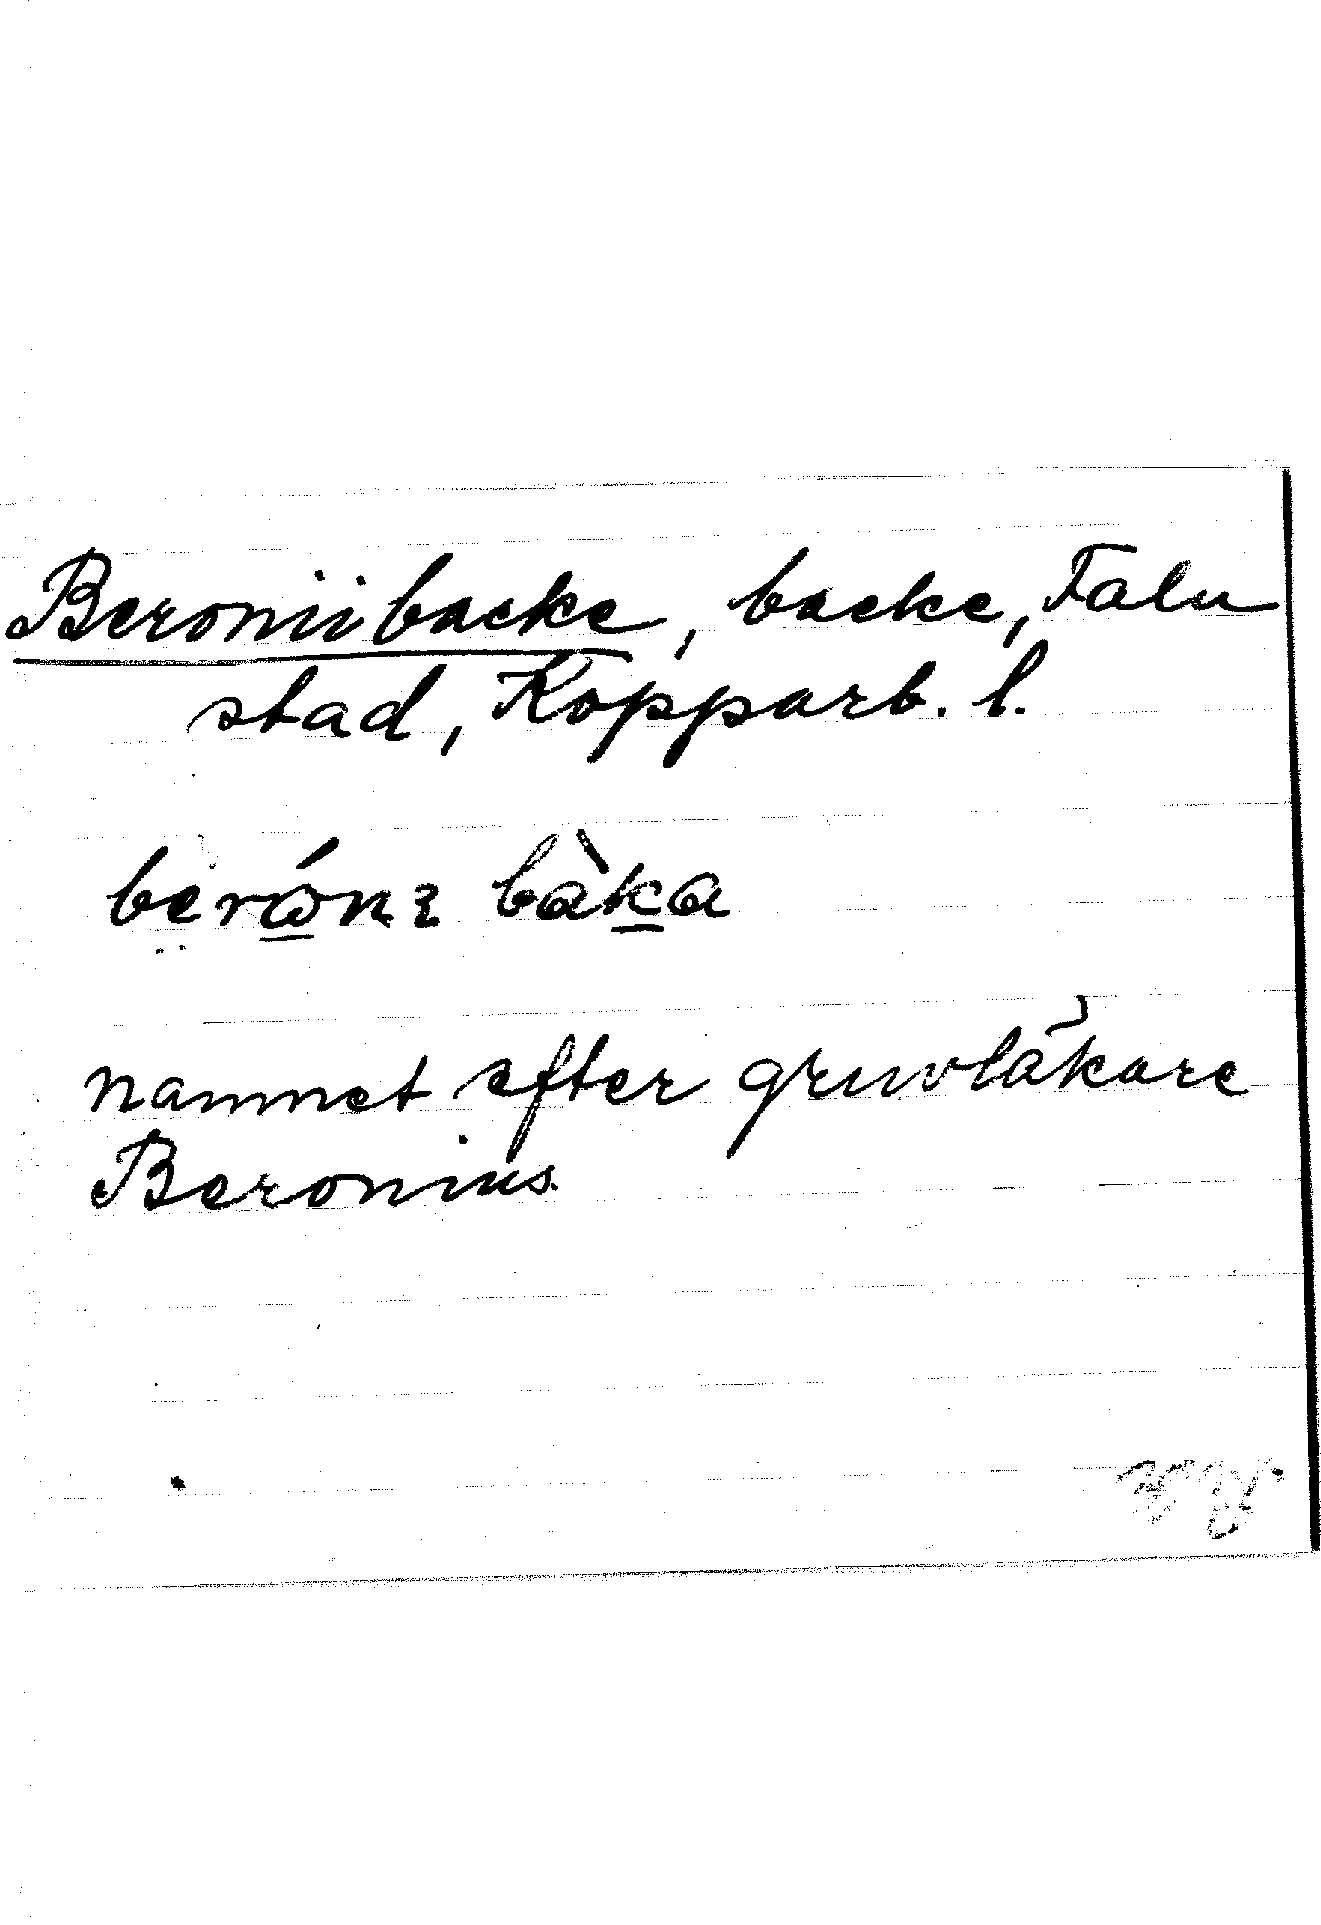 Beroniibacke, backe, Falu
stad, Kopparb. l.
namnet efter gruvläkare
Beronius.